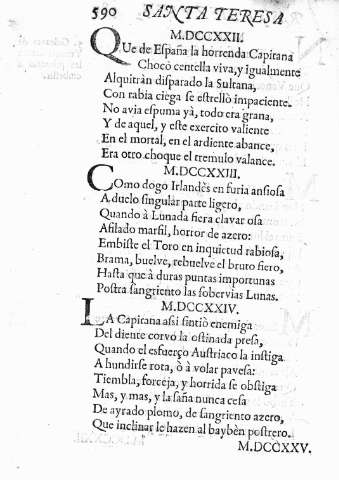 590 SANTA TERESA
M.DCCXXII.
QUe de España la horrenda Capitana
Chocò centella viva, y igualmente
Alquitràn disparado la Sultana,
Con rabia ciega se estrellò impaciente.
No avia espuma yà, todo era grana,
Y de aquel, y este exercito valiente
En el mortal, en el ardiente abance,
Era otro choque el tremulo valance.
M.DCCXXIII.
COmo dogo Irlandès en furia ansiosa
A duelo singular parte ligero,
Quando à Lunada fiera clavar osa
Afilado marfil, horror de azero:
Embiste el Toro en inquietud rabiosa,
Brama, buelve, rebuelve el bruto fiero,
Hasta que à duras puntas importunas
Postra sangriento las sobervias Lunas.
M.DCCXXIV.
LA Capitana assi sintiò enemiga
Del diente corvo la ostinada presa,
Quando el esfuerço Austriaco la instiga
A hundirse rota, ò à volar pavesa:
Tiembla, forceja, y horrida se obstiga
Mas, y mas, y la saña nunca cesa
De ayrado plomo, de sangriento azero,
Que inclinar le hazen al baybèn postrero.
M.DCCXXV.